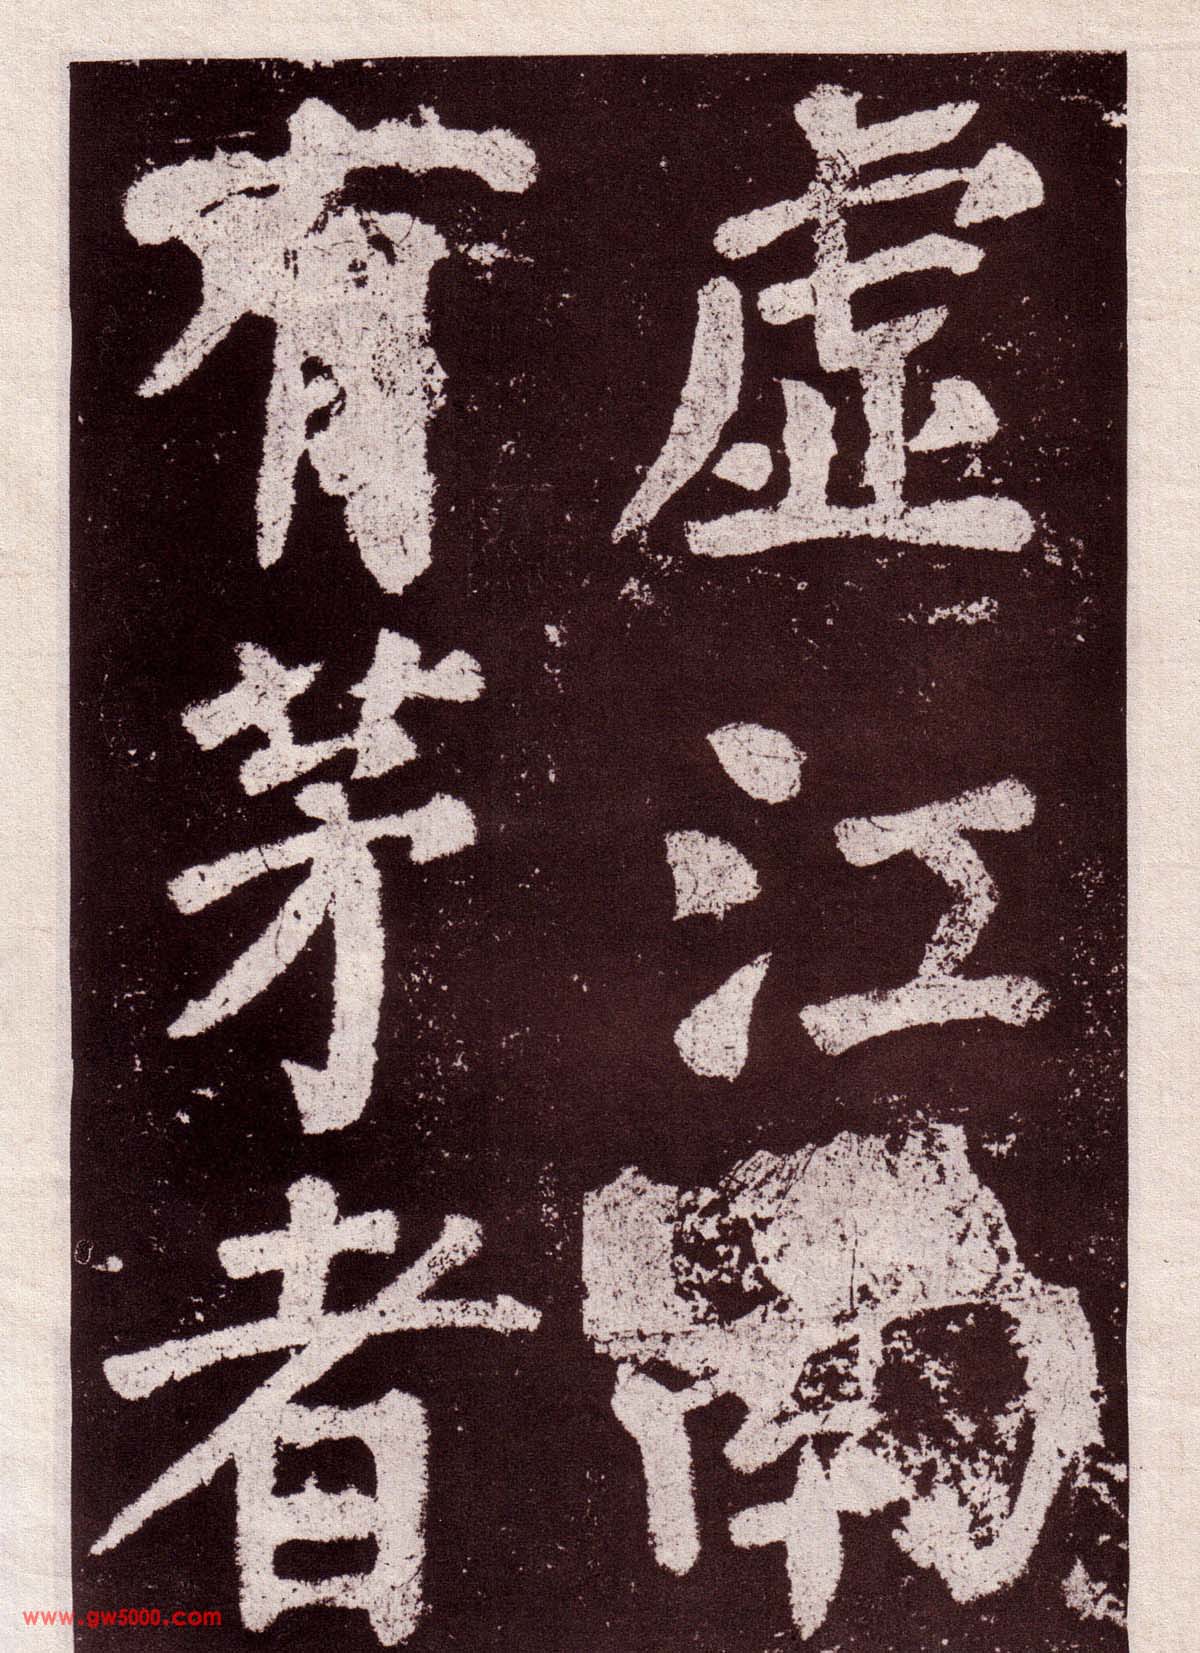 虛江南
有茅者
www.gw5000.com